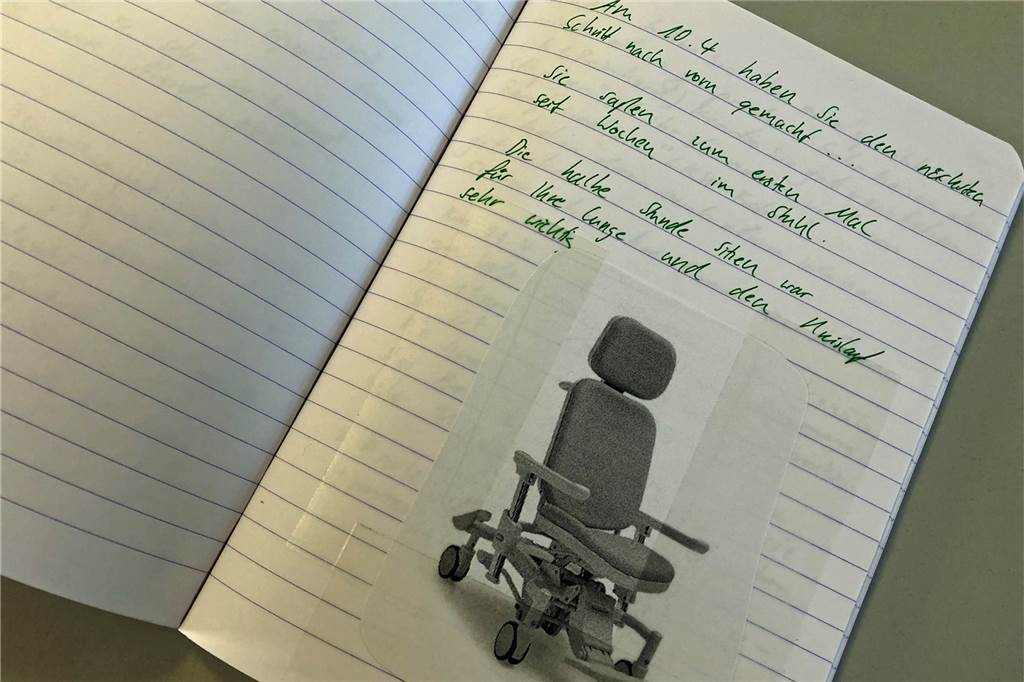 Am 10.4 haben Sie den nächsten
Schritt nach vorn gemacht ...
Sie saßen zum ersten Mal
seit Wochen im Stuhl.
Die halbe Stunde sitzen war
für Ihre Lunge und den Kreislauf
sehr wichtig